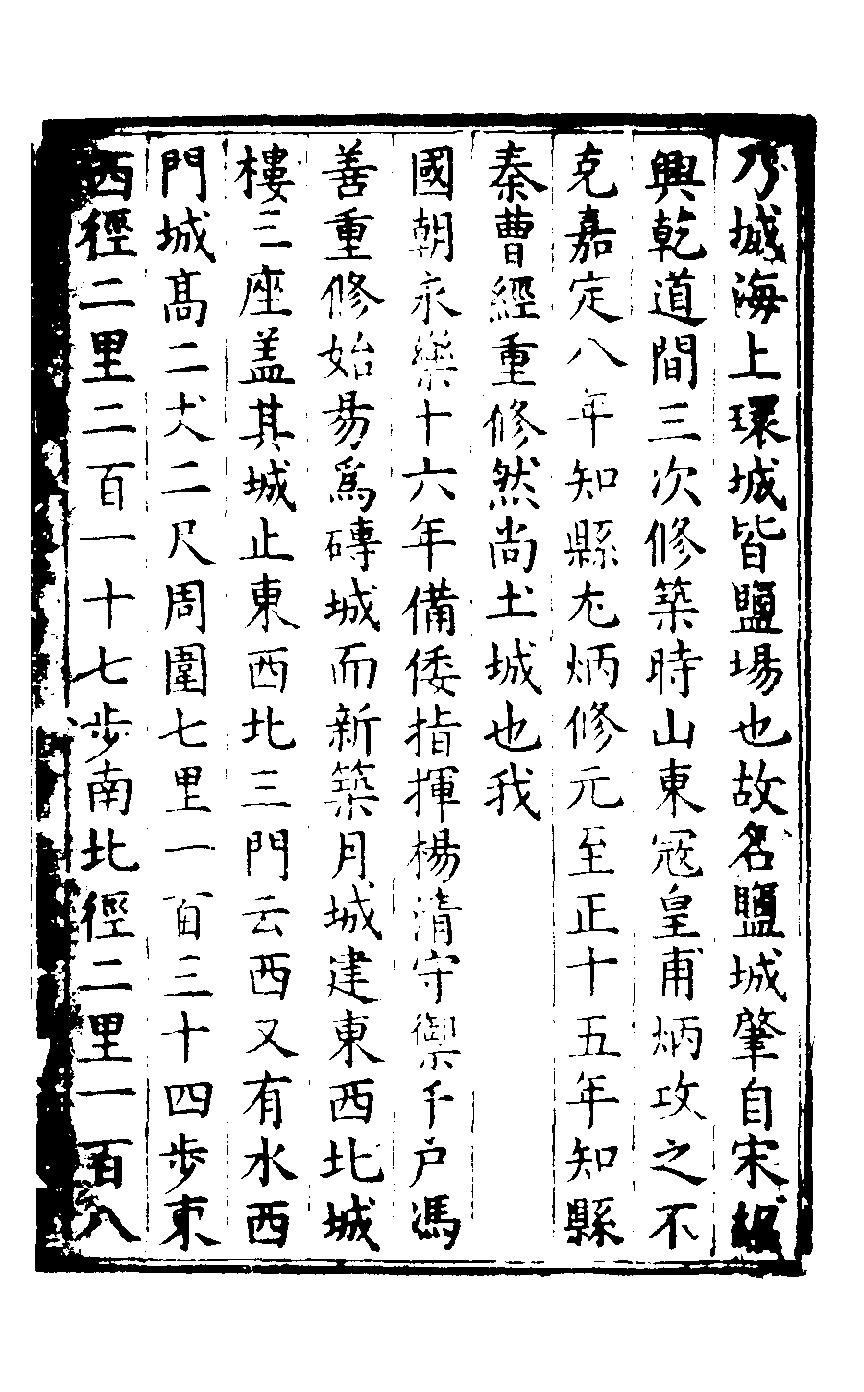 乃城海上環城皆鹽場也故名鹽城肇自宋紹
興乾道間三次修築時山東冦皇甫炳攻之不
克嘉定八年知縣尢炳修元至正十五年知縣
秦曹經重修然尚土城也我
國朝永樂十六年備倭指揮楊清守禦千户馮
善重修始易爲磚城而新築月城建東西北城
樓三座盖其城止東西北三門云西又有水西
門城髙二丈二尺周圍七里一百三十四步東
西徑二里二百一十七步南北徑二里一百八